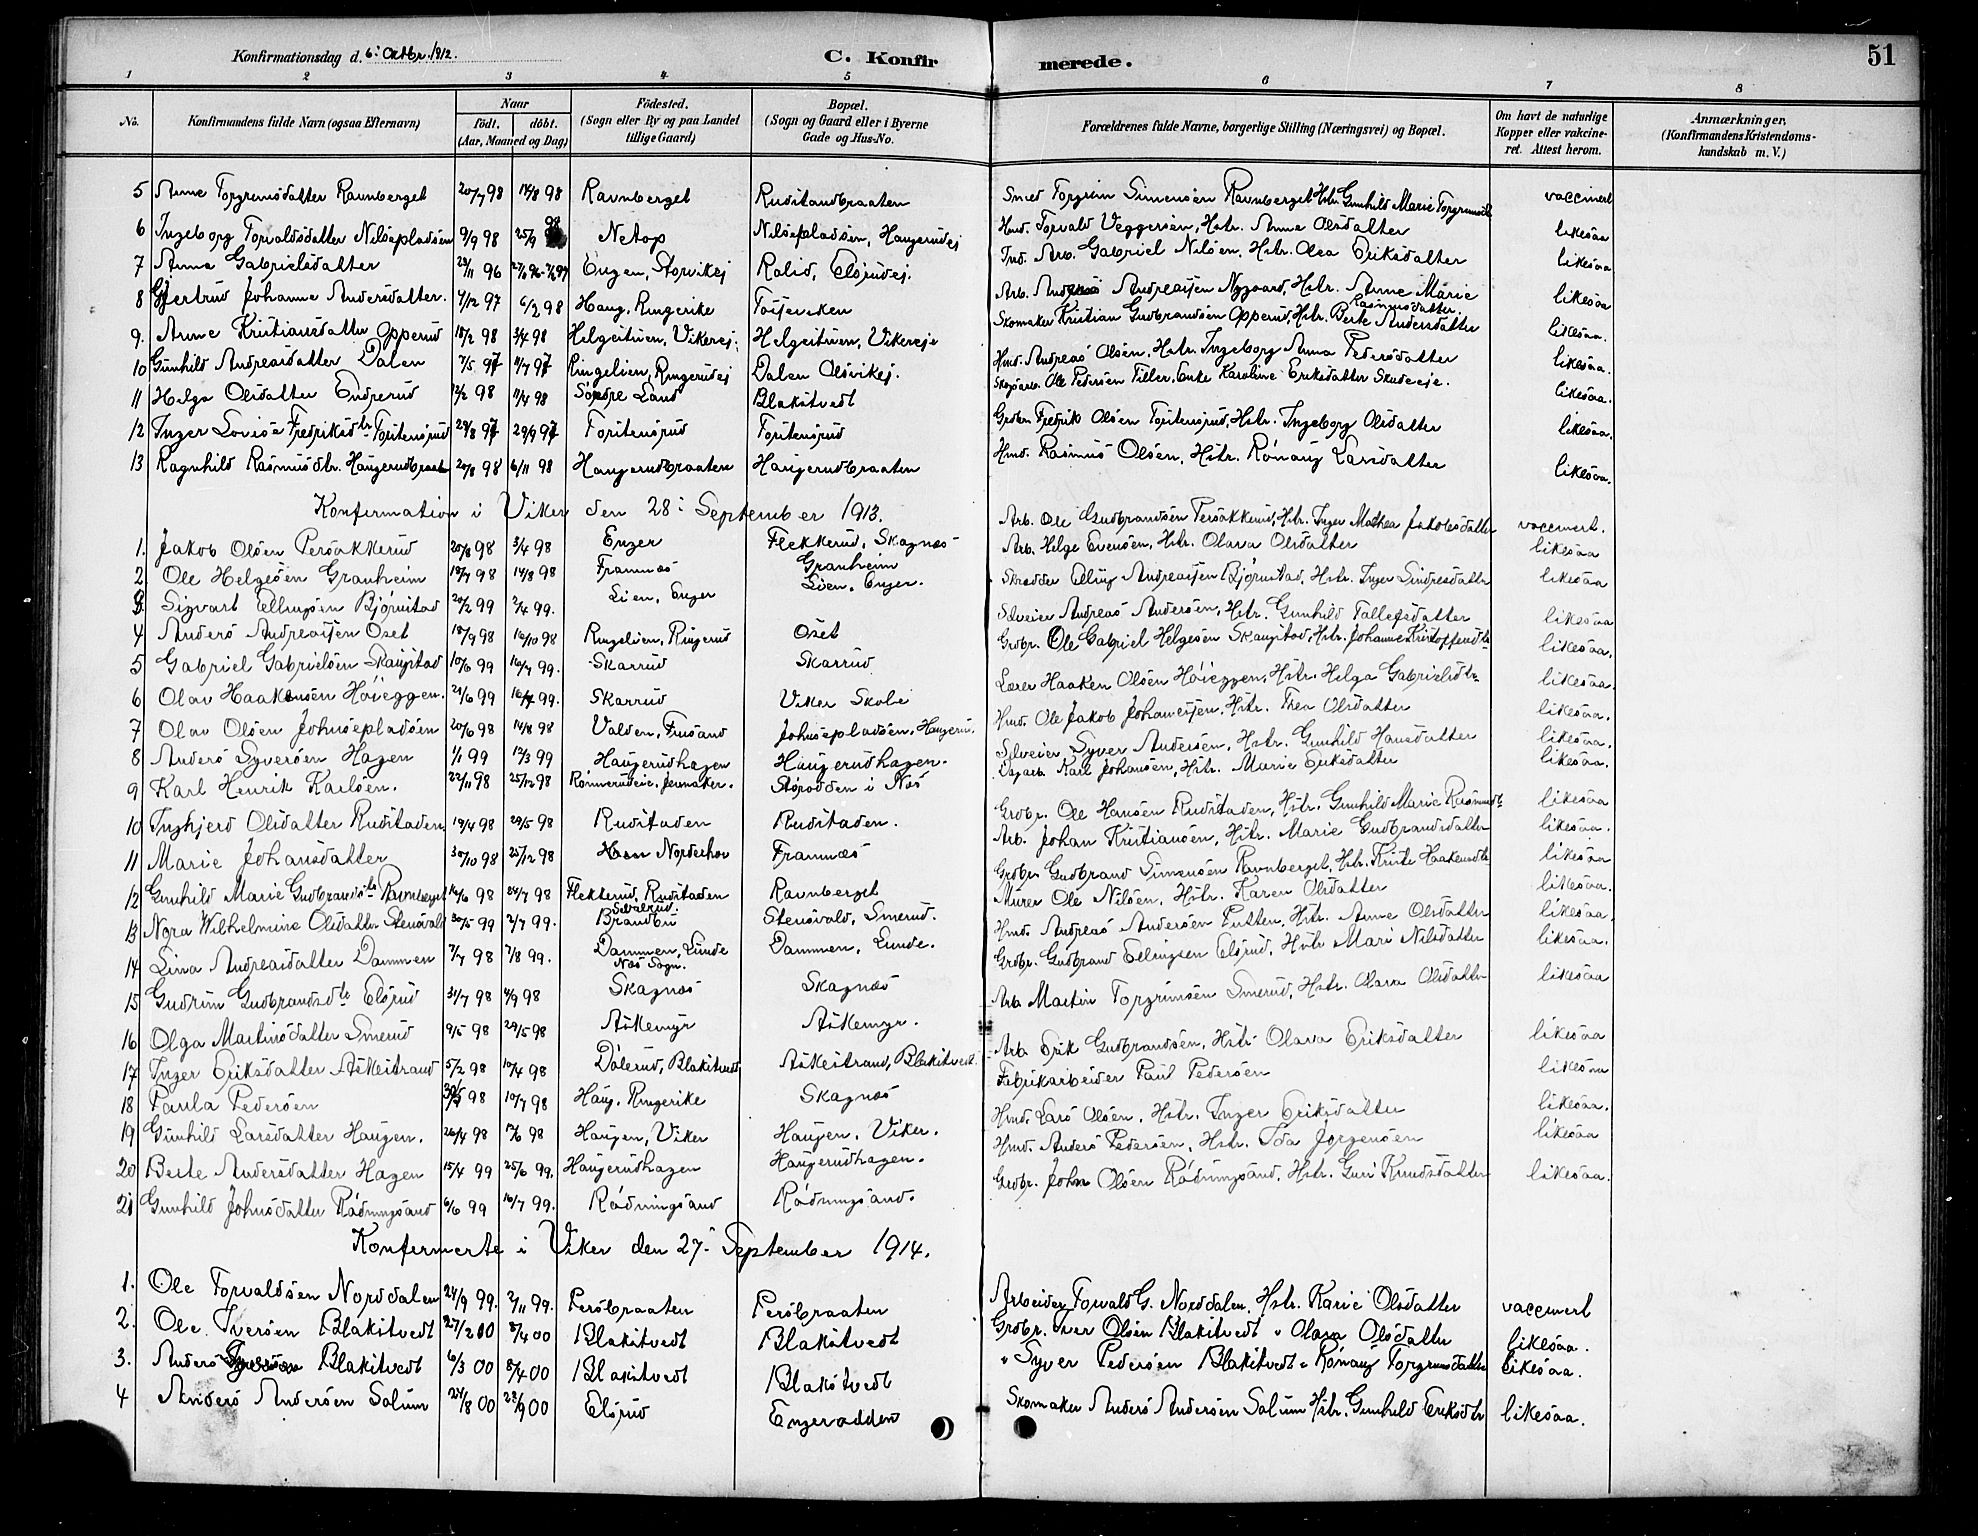 Konfirmationsdag d. 6: Octbr. 1912.
C. Konfirmerede.
51
1 2 3 4 5 6 7 8
No. Konfirmandens fulde Navn (ogsaa Efternavn) Naar födt. döbt. (Aar, Maaned og Dag) Födested. (Sogn eller By og paa Landet tillige Gaard) Bopæl. (Sogn og Gaard eller i Byerne Gade og Hus-No. Forældrenes fulde Navne, borgerlige Stilling (Næringsvei) og Bopæl. Om havt de naturlige Kopper eller vakcineret. Attest herom. Anmærkninger. (Konfirmandens Kristendomskundskab m. V.)
5 Anne Torgrimsdatter Ravnberget 20/7 98 14/8 98 Ravnberget Rudstandbraaten Smed Torgrim Simensen Ravnberget Hstr. Gunhild Marie vaccinert
6 Ingeborg Torvaldsdatter Nilsepladsen 9/9 98 25/9 98 Netop Nilsepladsen, Haugerudej Hmd. Torvald Veggersen, Hstr. Anne Olsdatter likesaa
7 Anna Gabrielsdatter 96 Engen, Storvikej Rolid, Elsrudej. Ind. Arb. Gabriel Nilsen, Hstr. Olea Eriksdatter likesaa
8 Gjertrud Johanne Andersdatter. 4/12 97 6/2 98 Haug, Ringerike Tosseviken Arb. Andreassen Nygaard, Hstr. Anne Marie Rasmusdatter likesaa
9. Anne Kristiansdatter Opperud 18/2 98 3/4 98 Helgeituen, Vikerej. Helgeituen, Vikereje Skomaker Kristian Gudbrandsen Opperud, Hstr. Berte Andersdatter likesaa.
10 Gunhild Andreasdatter Dalen 7/5 97 11/7 97 Ringelien, Ringerudej Dalen Olsvikej. Hmd. Andreas Olsen, Hstr. Ingeborg Anna Pedersdatter likesaa.
11 Helga Olsdatter Endrerud 98 11/4 98 Søndre Land Blakstvedt Skogsarb. Ole Pedersen Tiller, Enke Karoline Eriksdatter likesaa.
12 Inger Lovise Fredriksdtr. Torstensrud 29/8 97 29/9 97 Torstensrud Torstensrud Grdbr. Fredrik Olsen Torstensrud, Hstr. Ingeborg Olsdatter likesaa.
13 Ragnhild Rasmusdtr. Haugerudbraaten 20/8 98 6/11 98 Haugerudbraaten Haugerudbraaten Hmd. Rasmus Olsen, Hstr. Rønaug Larsdatter likesaa.
Konfirmation i Viker den 28: September 1913.
1. Jakob Olsen Persakkerud 20/8 98 3/4 98 Enger Flekkerud, Skagnæs Arb. Ole Gudbrandsen Persakkerud, Hstr. Inger Mathea Jakobsdatter vaccinert.
2. Ole Helgesen Granheim 18/7 98 14/8 98 Framnæs Granheim Arb. Helge Evensen, Hstr. Olava Olsdatter likesaa
3. Sigvart Ellingsen Bjørnstad 20/2 99 2/4 99. Lien, Enger Lien, Enger. Skrædder Elling Andreassen Bjørnstad, Hstr. Inger Sindresdatter likesaa
4 Anders Andreassen Oset 18/9 98 16/10 98 Ringelien, Ringerud Oset Selveier Andreas Andersen, Hstr. Gunhild Tallefsdatter likesaa
5 Gabriel Gabrielsen Skaugstad 10/6 99 16/7 99. Skarrud Skarrud Grdbr. Ole Gabriel Helgesen Skaugstad, Hstr. Johanne Kristoffersdtr likesaa.
6 Olav Haakensen Høieggen. 24/6 99 16/7 99. Skarrud Viker Skole Lærer Haaken Olsen Høieggen, Hstr. Helga Gabrielsdtr. likesaa.
7 Olav Olsen Johnsepladsen 20/6 98 14/8 98 Valden, Frisand Johnsepladsen, Haugerud. Hmd. Ole Jakob Johannessen, Hstr. Thea Olsdatter likesaa.
8 Anders Syversen Hagen 1/1 99 12/3 99 Haugerudhagen Haugerudhagen. Selveier Syver Andersen, Hstr. Gunhild Hansdatter likesaa.
9 Karl Henrik Karlsen. 22/11 98 25/12 98 Rønnerudeie, Jevnaker. Storodden i Nes Dagarb. Karl Johansen, Hstr. Marie Eriksdatter likesaa.
10 Ingbjerd Olsdatter Rudstaden 18/4 98 29/5 98 Rudstaden Rudstaden. Grdbr. Ole Hansen Rudstaden, Hstr. Gunhild Marie Rasmusdtr likesaa
11 Marie Johansdatter 30/10 98 25/12 98 Norderhov Framnæs Arb. Johan Kristiansen, Hstr. Marie Gudbrandsdatter likesaa.
12 Gunhild Marie Gudbrandsdtr Ravnberget 16/6 98 24/7 98 Flekkerud, Rudstaden Ravnberget Grdbr. Gudbrand Simensen Ravnberget, Hstr. Kristi Haakensdtr likesaa
13 Nora Wilhelmine Olsdatter Stensvald 30/5 99 2/7 99. Brandbu Stensvald, Smerud. Murer Ole Nilsen, Hstr. Karen Olsdatter likesaa.
14 Lina Andreasdatter Dammen 7/7 98 7/8 99. Dammen, Lunde Nes Sogn. Dammen, Lunde. Hmd. Andreas Andersen Putten, Hstr. Anne Olsdatter likesaa.
15 Gudrun Gudbrandsdtr Elsrud 31/7 98 4/9 98 Skagnæs Skagnæs Grdbr. Gudbrand Ellingsen Elsrud, Hstr Mari Nilsdatter likesaa.
16 Olga Martinsdatter Smerud 9/5 98 29/5 98 Askemyr Askemyr. Arb. Martin Torgrimsen Smerud, Hstr. Olava Olsdatter likesaa
17 Inger Eriksdatter Askestrand 5/2 98 10/4 98 Dølerud, Blakstvedt Askestrand, Blakstvedt Arb. Erik Gudbrandsen, Hstr. Olava Eriksdatter likesaa
18 Paula Pedersen 98 10/7 98 Haug, Ringerike Skagnæs Fabrikarbeider Paul Pedersen likesaa
19 Gunhild Larsdatter Haugen. 26/4 98 98 Haugen, Viker Haugen, Viker. Hmd. Lars Olsen, Hstr. Inger Eriksdatter likesaa.
20 Berte Andersdatter Hagen 15/4 99 25/6 99. Haugerudhagen Haugerudhagen. Hmd. Anders Pedersen, Hstr. Ida Jørgensen likesaa
21 Gunhild Johnsdatter Rødningsand 6/6 99 16/7 99. Rødningsand Rødningsand. Grdbr. John Olsen Rødningsand, Hstr. Guri Knudsdatter likesaa.
Konfermerte i Viker den 27: September 1914.
1. Ole Torvaldsen Norddalen 24/9 99. 2/11 99. Persbraaten Persbraaten Arbeider Torvald G. Norddalen, Hstr. Karie Olsdatter vaccinert
2. Ole Iversen Blakstvedt 27/2 00 8/4 00 Blakstvedt Blakstvedt Grdbr. Iver Olsen Blakstvedt " Olava Olsdatter likesaa.
3. Anders Syversen Blakstvedt 6/3 00 8/4 00 Blakstvedt Blakstvedt " Syver Pedersen Blakstvedt " Rønaug Torgrimsdatter likesaa.
4 Anders Andersen Solum 24/8 00 23/9 00 Elsrud Engerodden Skomaker Anders Andersen Solum Hstr. Gunhild Eriksdtr likesaa.